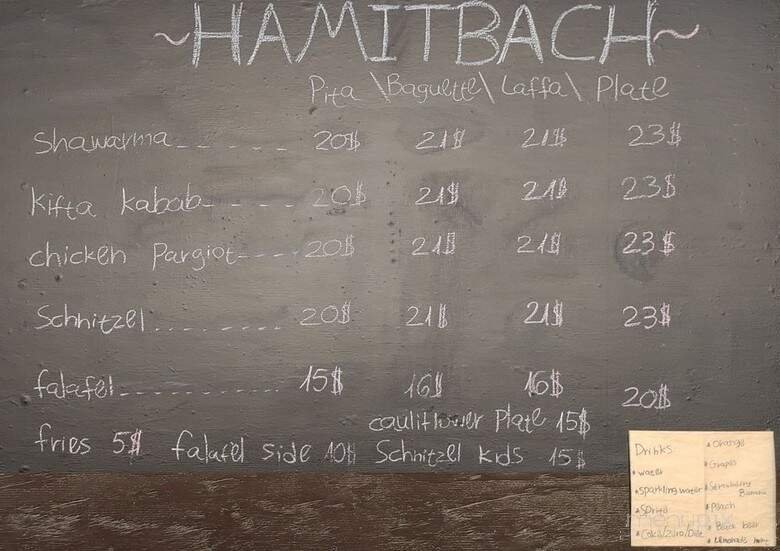 ~HAMITBACH~
Pita \Baguette\ Laffa\ Plate
Shawarma 20$ 21$ 21$ 23$
Kifta kabab 20$ 21$ 21$ 23$
chicken Pargiot 20$ 21$ 21$ 23$
Schnitzel 20$ 21$ 21$ 23$
falafel 15$ 16$ 16$ 20$
cauliflower Plate 15$
fries 5$ falafel side 10$ Schnitzel kids 15$
Drinks
water
sparkling water
Sprite
Coka/Zero/Diet
Orange
Grapes
Strawberry
Banana
Peach
Black beer